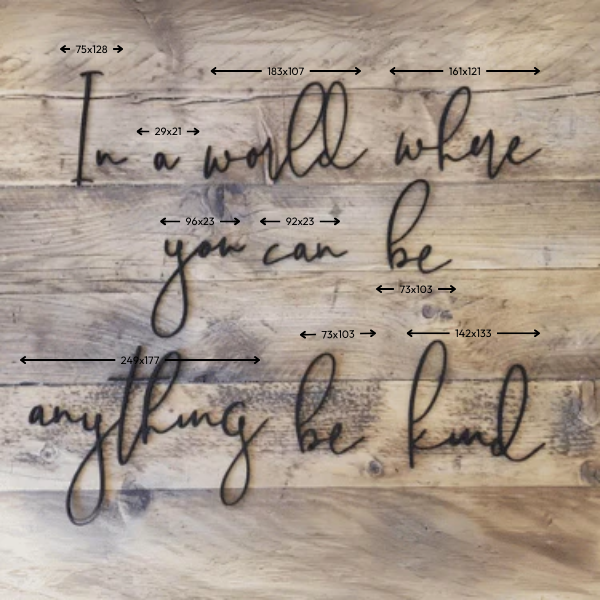 75x128
183x107 161x121
29x21
In a world where
96x23 92x23
you can be
73x103
73x103 142x133
249x177
anything be kind